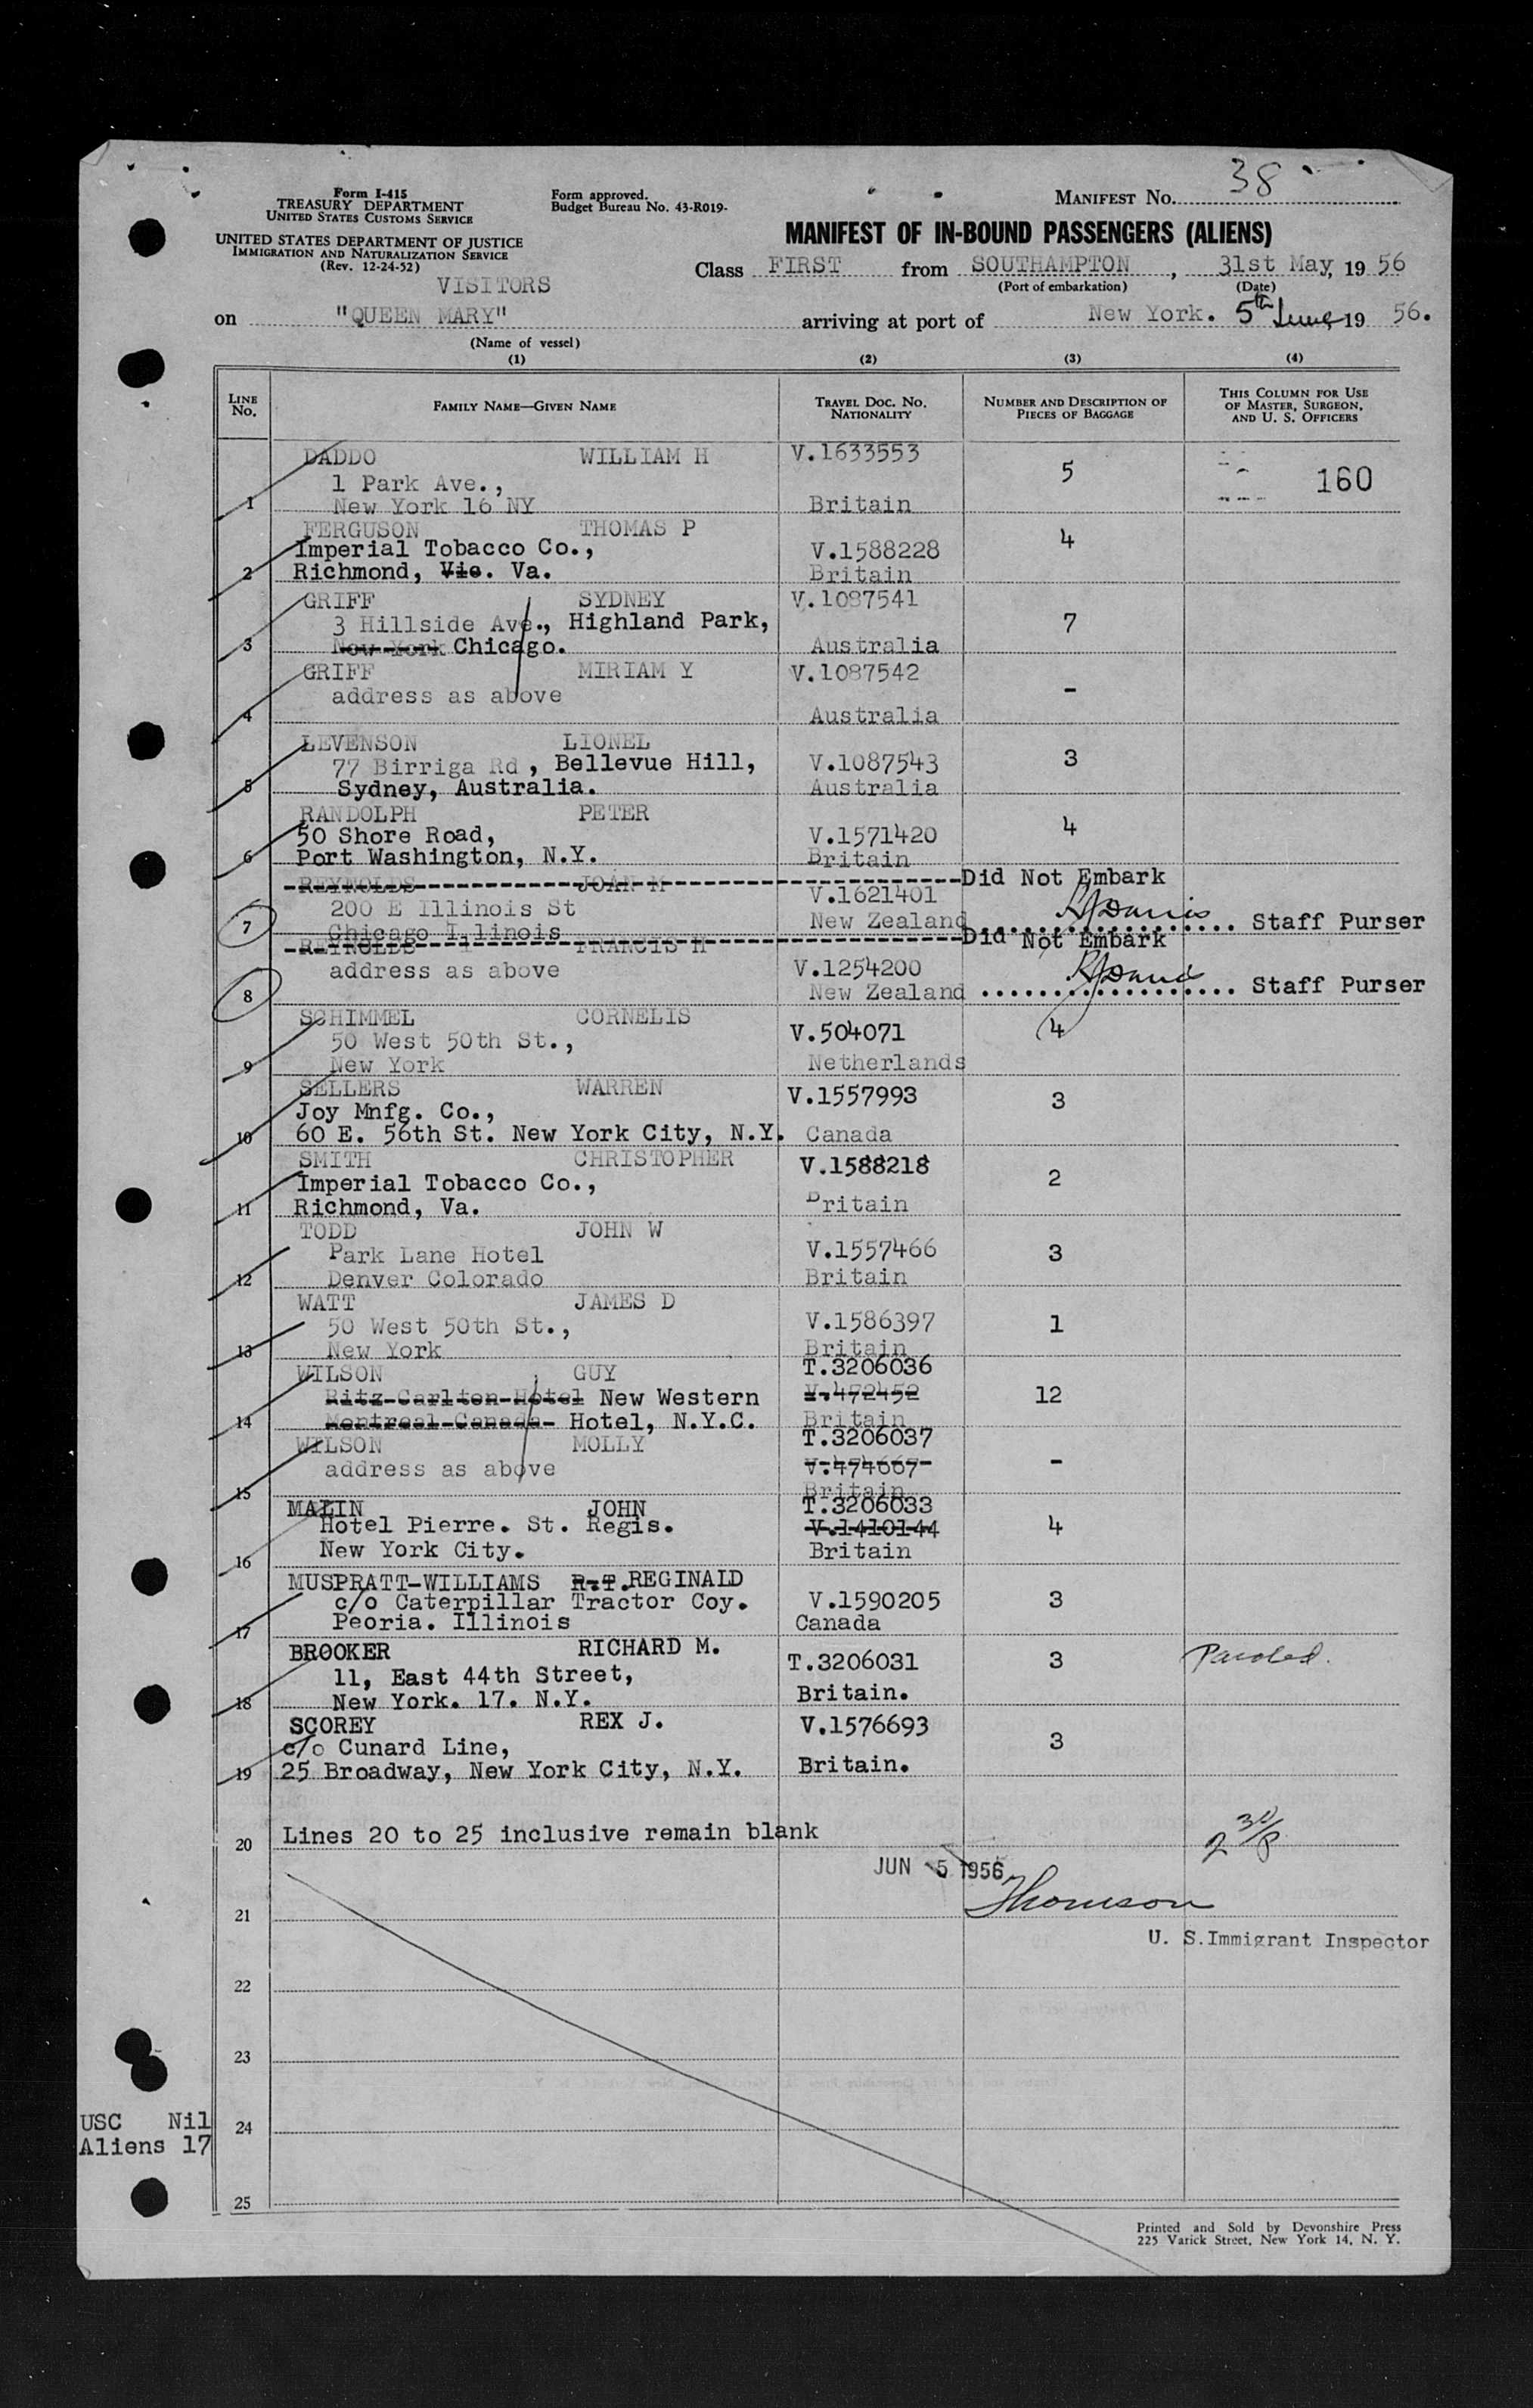 38
Form I-415
TREASURY DEPARTMENT
UNITED STATES CUSTOMS SERVICE
Form approved.
Budget Bureau No. 43-R019-
MANIFEST No.
UNITED STATES DEPARTMENT OF JUSTICE
IMMIGRATION AND NATURALIZATION SERVICE
(Rev. 12-24-52)
MANIFEST OF IN-BOUND PASSENGERS (ALIENS)
Class FIRST from SOUTHAMPTON, 31st May, 19 56
(Port of embarkation) (Date)
VISITORS
on "QUEEN MARY" arriving at port of New York. 5th June 19 56.
(Name of vessel)
(1) (2) (3) (4)
LINE No. FAMILY NAME—GIVEN NAME TRAVEL DOC. NO. NATIONALITY NUMBER AND DESCRIPTION OF PIECES OF BAGGAGE THIS COLUMN FOR USE OF MASTER, SURGEON, AND U. S. OFFICERS
DADDO WILLIAM H V.1633553
1 Park Ave., 5 160
1 New York 16 NY Britain
FERGUSON THOMAS P 4
Imperial Tobacco Co., V.1588228
2 Richmond, Vic. Va. Britain
GRIFF SYDNEY V.1087541
3 Hillside Ave., Highland Park, 7
3 New York Chicago. Australia
GRIFF MIRIAM Y V.1087542
address as above -
4 Australia
LEVENSON LIONEL 3
77 Birriga Rd, Bellevue Hill, V.1087543
5 Sydney, Australia. Australia
RANDOLPH PETER 4
50 Shore Road, V.1571420
6 Port Washington, N.Y. Britain
REYNOLDS JOAN M Did Not Embark
200 E Illinois St V.1621401
7 Chicago Illinois New Zealand Staff Purser
REYNOLDS FRANCIS H Did Not Embark
address as above V.1254200
8 New Zealand Staff Purser
SCHIMMEL CORNELIS
50 West 50th St., V.504071 4
9 New York Netherlands
SELLERS WARREN V.1557993
Joy Mnfg. Co., 3
10 60 E. 56th St. New York City, N.Y. Canada
SMITH CHRISTOPHER V.1588218
Imperial Tobacco Co., 2
11 Richmond, Va. Britain
TODD JOHN W
Park Lane Hotel V.1557466 3
12 Denver Colorado Britain
WATT JAMES D
50 West 50th St., V.1586397 1
13 New York Britain
WILSON GUY T.3206036
Ritz-Carlton-Hotel New Western V.472452 12
14 Montreal-Canada- Hotel, N.Y.C. Britain
WILSON MOLLY T.3206037
address as above V.474667 -
15 Britain
MALIN JOHN T.3206033
Hotel Pierre. St. Regis. V.1410144 4
16 New York City. Britain
MUSPRATT-WILLIAMS R.T. REGINALD
c/o Caterpillar Tractor Coy. V.1590205 3
17 Peoria. Illinois Canada
BROOKER RICHARD M. T.3206031 3 Paroled.
11, East 44th Street,
18 New York. 17. N.Y. Britain.
SCOREY REX J. V.1576693
c/o Cunard Line, 3
19 25 Broadway, New York City, N.Y. Britain.
20 Lines 20 to 25 inclusive remain blank
JUN 5 1956
Thomson
21
U. S. Immigrant Inspector
22
23
USC Nil
24
Aliens 17
25
Printed and Sold by Devonshire Press
225 Varick Street, New York 14, N. Y.